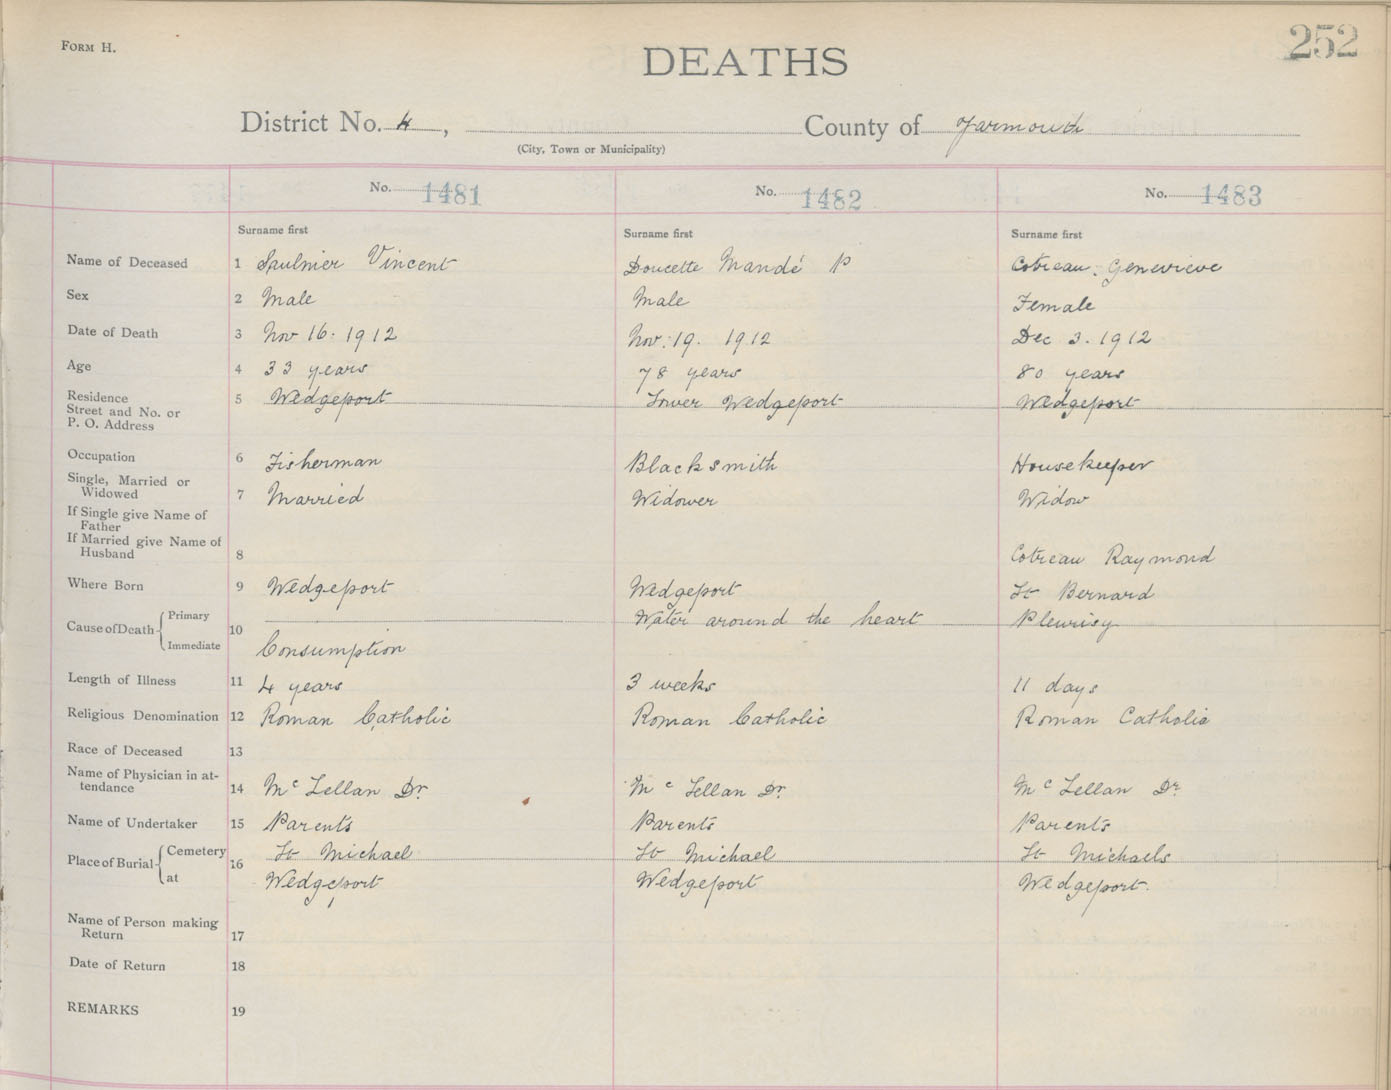 FORM H.
252
DEATHS
District No. 4, County of Yarmouth
(City, Town or Municipality)
No. 1481 No. 1482 No. 1483
Surname first Surname first Surname first
Name of Deceased 1 Saulnier Vincent Doucette Mandé P Cotreau, Genevieve
Sex 2 Male Male Female
Date of Death 3 Nov 16. 1912 Nov. 19. 1912 Dec 3. 1912
Age 4 33 years 78 years 80 years
Residence 5 Wedgeport Lower Wedgeport Wedgeport
Street and No. or
P. O. Address
Occupation 6 Fisherman Blacksmith Housekeeper
Single, Married or
Widowed 7 Married Widower Widow
If Single give Name of
Father
If Married give Name of
Husband 8 Cotreau Raymond
Where Born 9 Wedgeport Wedgeport St Bernard
Cause of Death Primary 10 Water around the heart Pleurisy
Immediate Consumption
Length of Illness 11 4 years 3 weeks 11 days
Religious Denomination 12 Roman Catholic Roman Catholic Roman Catholic
Race of Deceased 13
Name of Physician in at-
tendance 14 McLellan Dr. Mc Lellan Dr. Mc Lellan Dr.
Name of Undertaker 15 Parents Parents Parents
Place of Burial Cemetery 16 St Michael St Michael St Michaels
at Wedgeport Wedgeport Wedgeport.
Name of Person making
Return 17
Date of Return 18
REMARKS 19